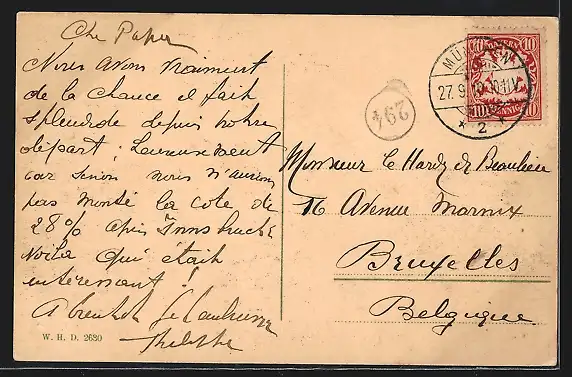 Che Papa
Nous avons vraiment
de la chance il fait
splendide depuis notre
départ ; heureusement
car sinon nous n'aurions
pas monté la cote de
28% après Innsbruck
Voila qui était
intéressant !
A bientot
W. H. D. 2630
MÜNCHEN
27.9. 10-11V.
* 2
BAYERN
10 10
PFENNIG
294
Monsieur le Hardy de Beaulieu
16 Avenue Marnix
Bruxelles
Belgique